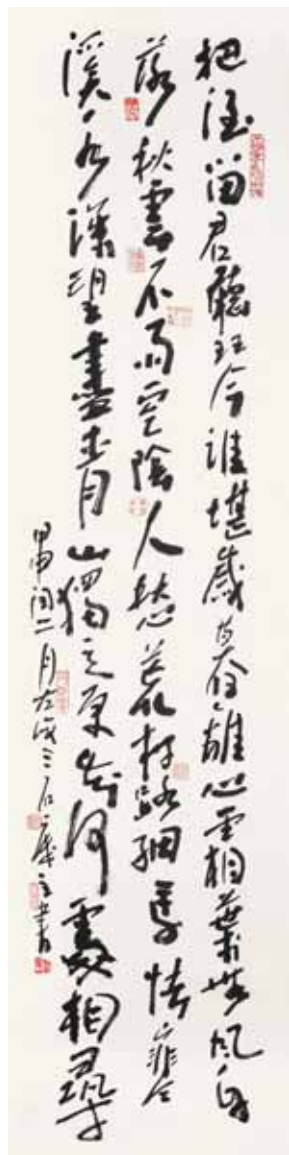 把酒留君聽琴誰堪歲暮離心霜葉無風自
落秋雲不雨空陰人愁荒村路細馬怯寒
溪水深望盡青山獨立更知何處相尋
甲申閏二月三石主書